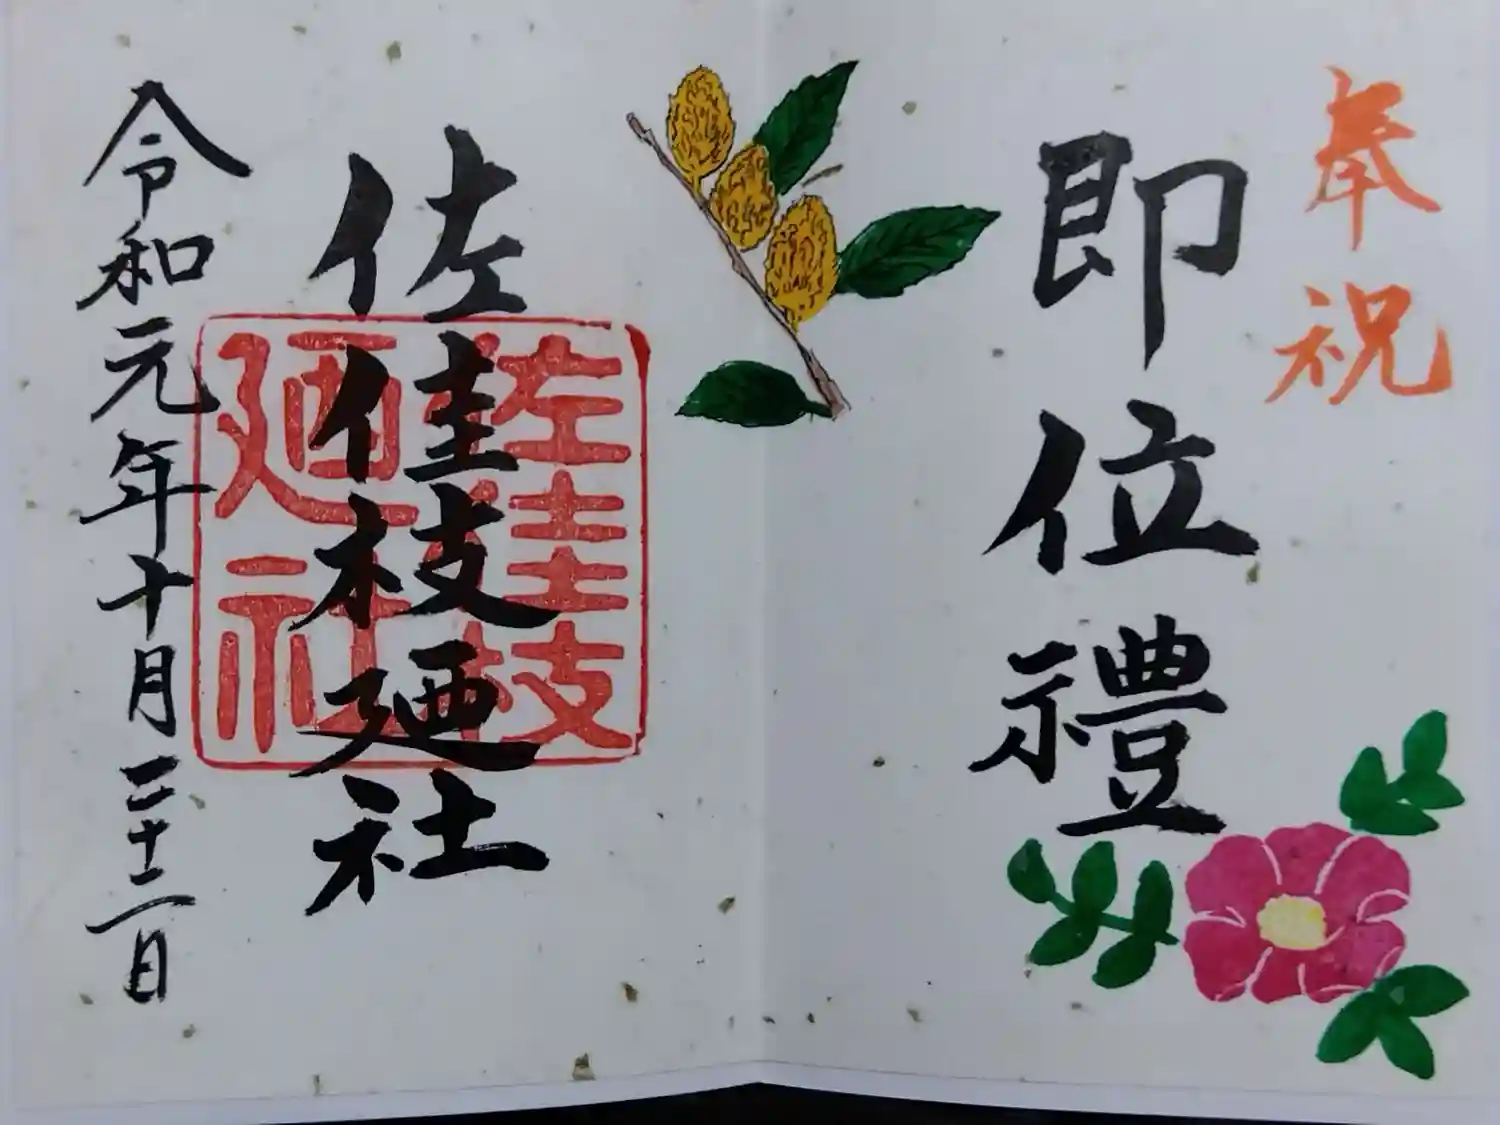 奉祝
即位禮
佐佳枝廼社
令和元年十月二十二日
佐佳枝
廼社